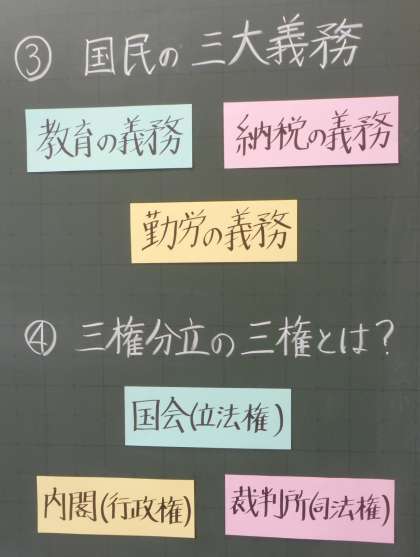 ③ 国民の三大義務
教育の義務 納税の義務
勤労の義務
④ 三権分立の三権とは？
国会(立法権)
内閣(行政権) 裁判所(司法権)